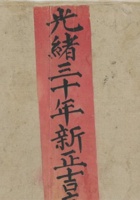 光緒三十年新正吉